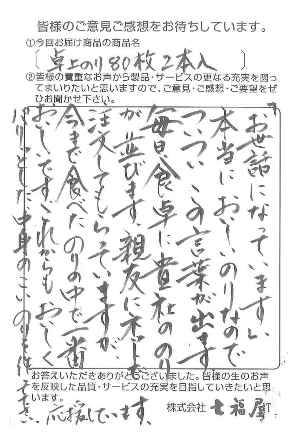 皆様のご意見ご感想をお待ちしています。
①今回お届け商品の商品名
〔卓上のり80枚2本入〕
②皆様の貴重なお声から製品・サービスの更なる充実を図っ
てまいりたいと思いますので、ご意見・ご感想・ご要望をぜ
ひお聞かせ下さい。
お世話になっています。
本当においしいのりなので
ついついこの言葉が出ます
毎日食卓に貴社ののり
が並びます。親友に
注文してもらっていますが
今まで食べたのりの中で一番
おいしいです。これからもおいしく
パリッとした中身のこいのりを
応援しています。
お答えいただきありがとうございました。皆様の生のお声
を反映した品質・サービスの充実を目指していきたいと思
います。
株式会社 七福屋